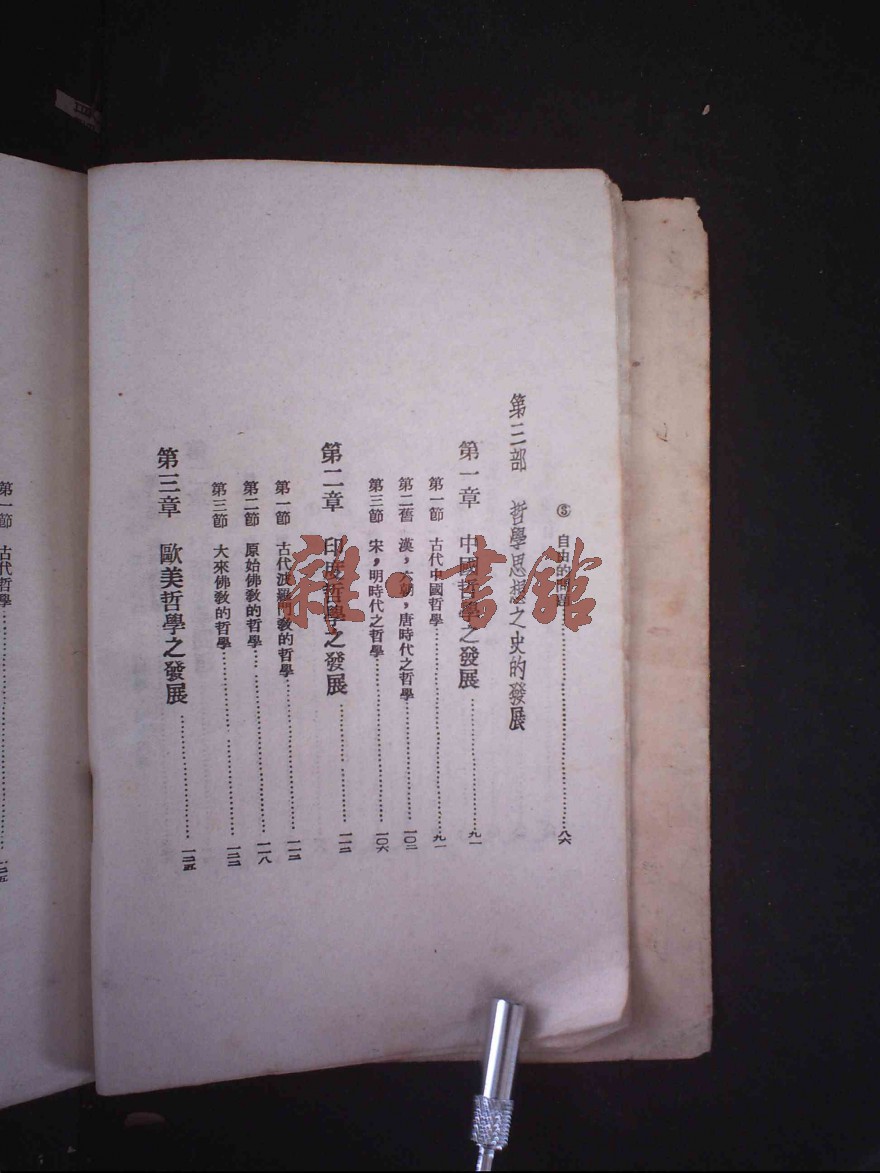 ③ 自由的問題……八六
第三部 哲學思想之史的發展
第一章 中國哲學之發展……九一
第一節 古代中國哲學……九一
第二舊 漢，六朝，唐時代之哲學……一〇二
第三節 宋，明時代之哲學……一〇六
第二章 印度哲學之發展……一一二
第一節 古代波羅門教的哲學……一一二
第二節 原始佛教的哲學……一一八
第三節 大來佛教的哲學……一二二
第三章 歐美哲學之發展……一二五
第一節 古代哲學……一二五
雜·書館